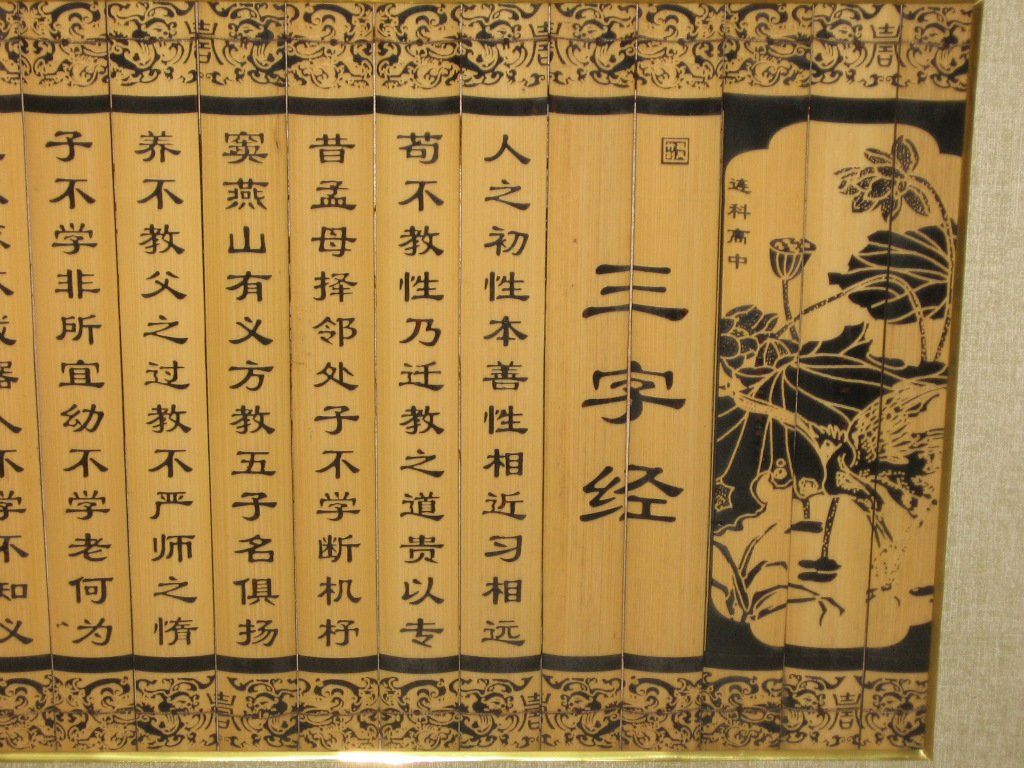 连科高中
三字经
人之初性本善性相近习相远
苟不教性乃迁教之道贵以专
昔孟母择邻处子不学断机杼
窦燕山有义方教五子名俱扬
养不教父之过教不严师之惰
子不学非所宜幼不学老何为
不成器人不学不知义